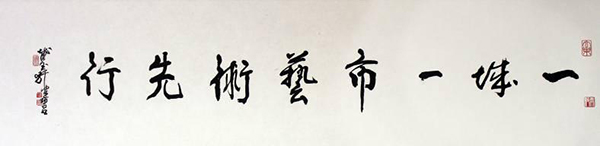 一城一市藝術先行